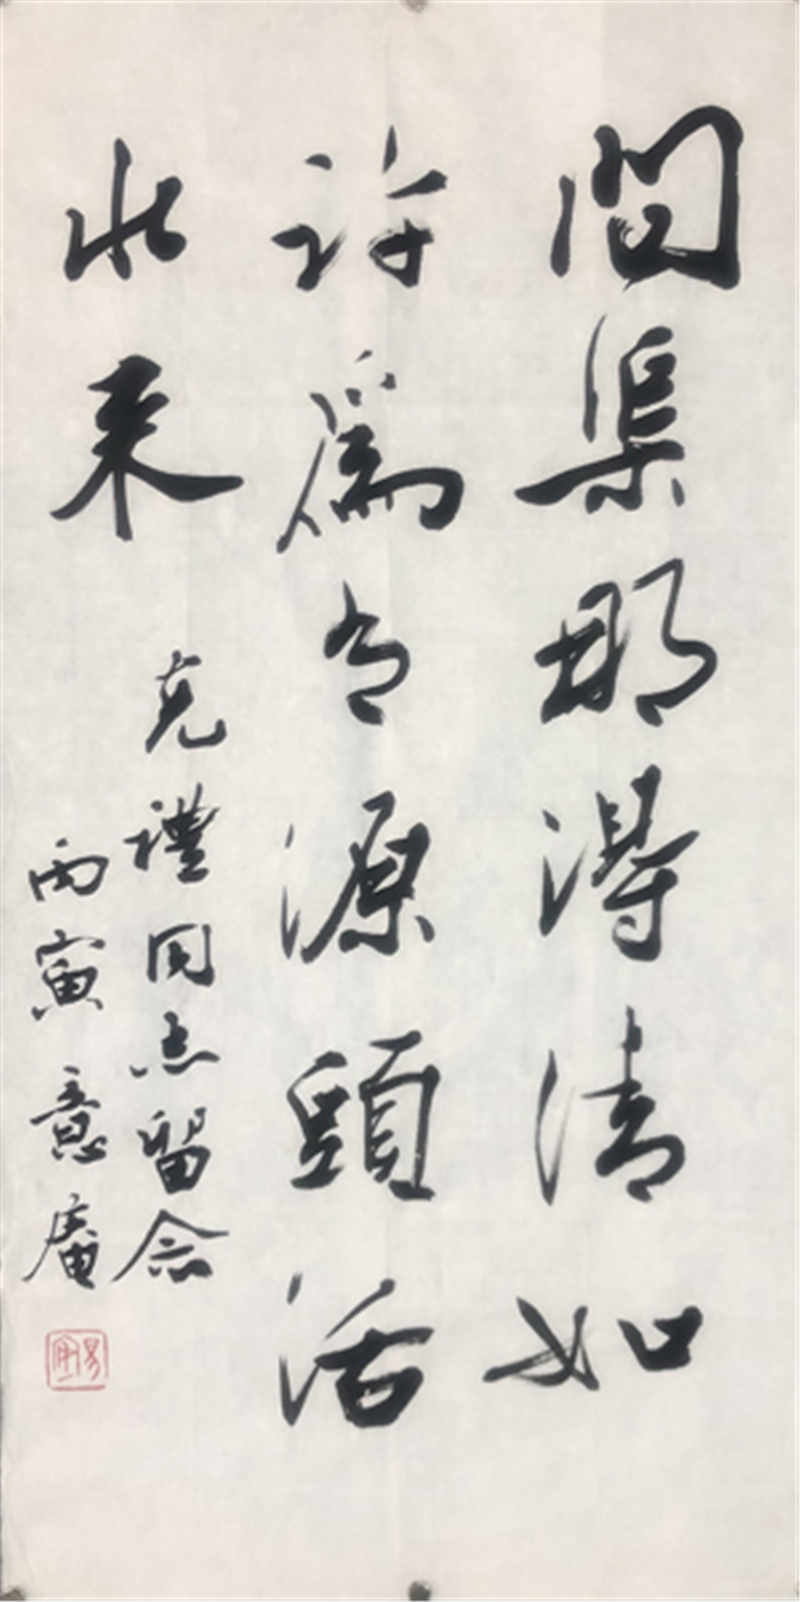 問渠那得清如
許為有源頭活
水来
克禮同志留念
丙寅意庵